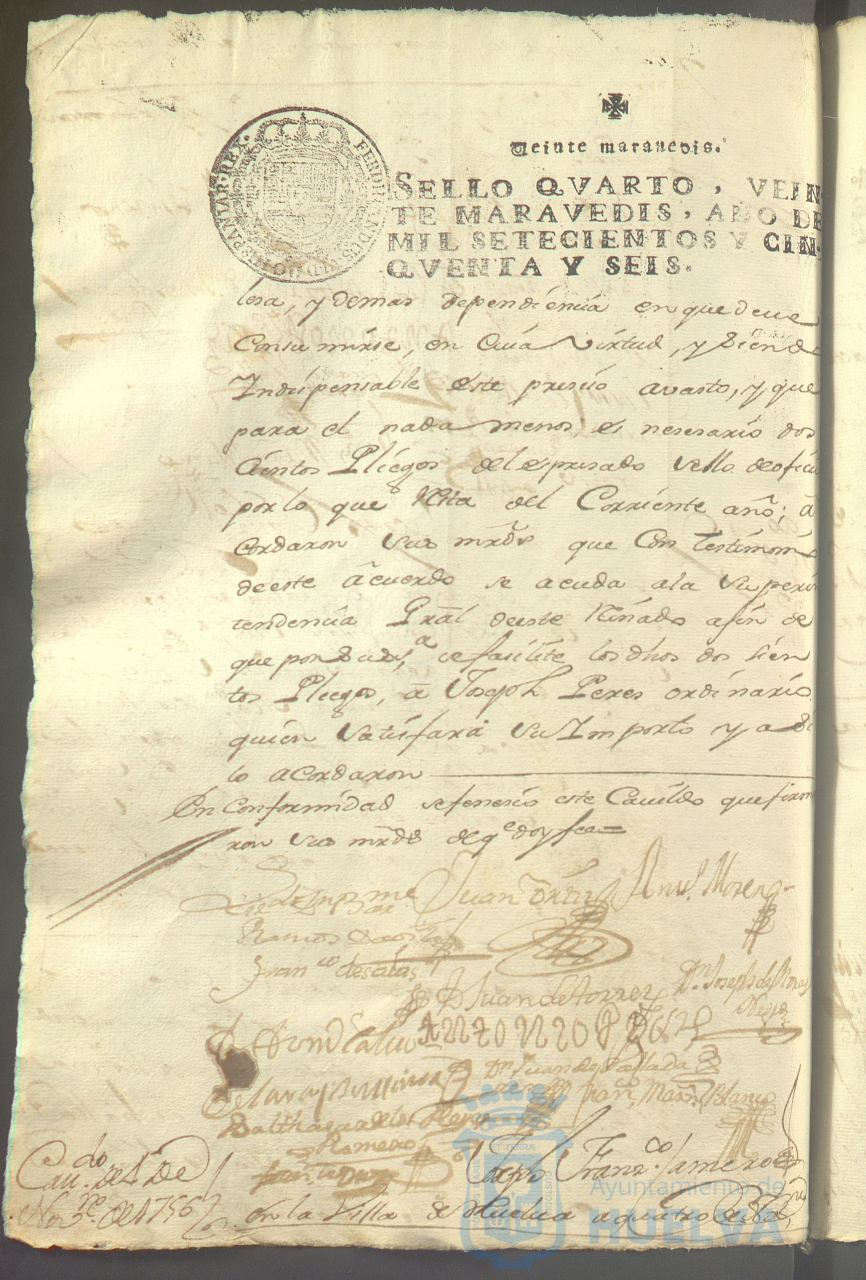 Veinte maravedis.
SELLO QVARTO, VEIN-
TE MARAVEDIS, AÑO DE
MIL SETECIENTOS Y CIN-
QVENTA Y SEIS.
HISPANIAR·REX· FERDINANDUS VI D G
losa, y demas dependiencia en que deve
Consumirse, en Cuia Virtud, y Siendo
Indispensable este presiso avasto, y que
para el nada menos es nesesario dos
Cientos Pliegos del espresado sello de ofici
por lo que Resta del Corriente año; a
cordaron sus mrds que Con testimoni
de este acuerdo se acuda a la Superin
tendencia Gral deeste Reinado afin de
que por Su Sa. se fasilite los dhos dos sien
tos Pliegos, a Joseph Peres ordinario
quien satisfara su Importe y asi
lo acordaron
En Conformidad sefenesio este Cavildo que firma
ron sus mrds de qe doy fee
Juan Ortiz Moreno
Ramos Dacosta
Franco de
D Juan de torres Dn Joseph de
Dn Juan de
Balthasar de los Reyes Fran. Marn. Blanco
Romero
Joseph Franzco. Romero
Cavdo. de 4 de
Novre. de 1756
en la Villa de Huelva a quatro de
Ayuntamiento de
HUELVA